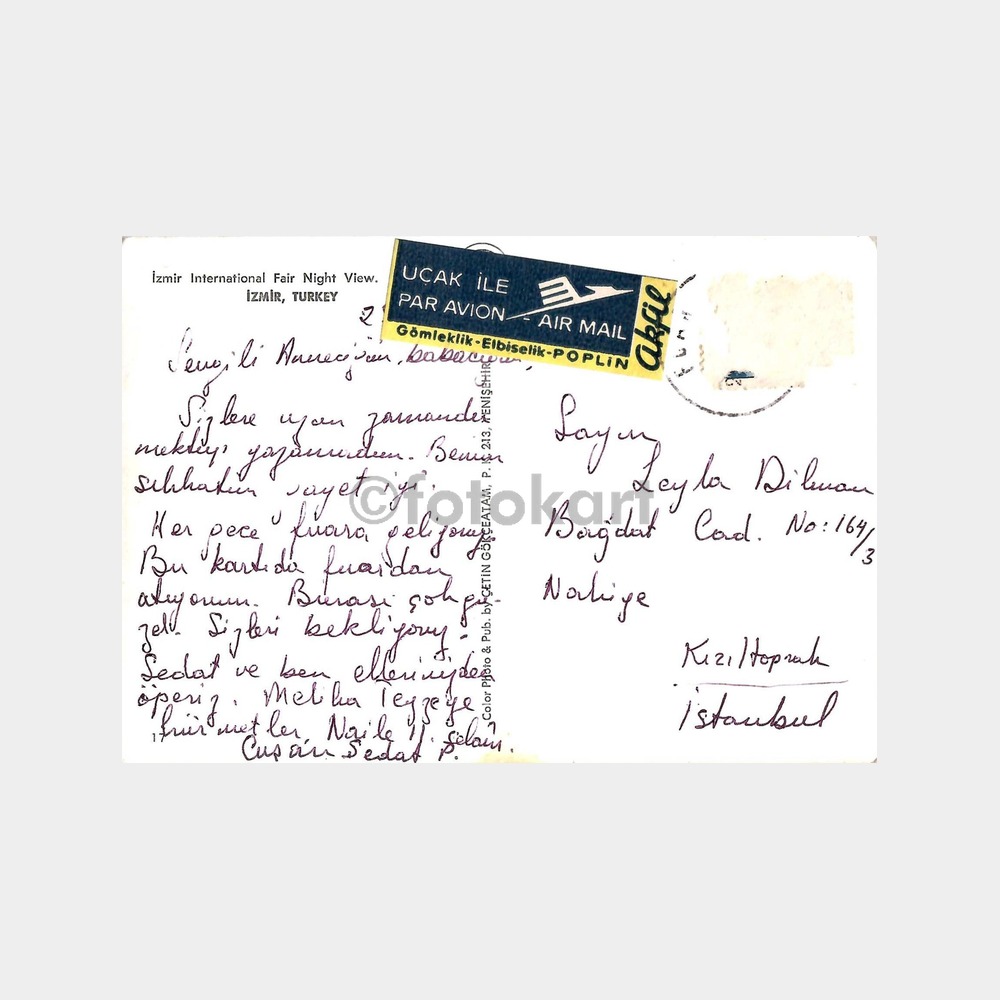 İzmir International Fair Night View.
İZMİR, TURKEY
UÇAK İLE
PAR AVION - AIR MAIL
Gömleklik-Elbiselik-POPLİN
Akfil
2
Sevgili Anneciğim, babacığım,
Sizlere uzun zamandır
mektup yazamadım. Benim
sıhhatim gayet iyi.
Her gece fuara geliyoruz.
Bu kartıda fuardan
atıyorum. Burası çok gü-
zel. Sizleri bekliyoruz.
Sedat ve ben ellerinizden
öperiz. Meliha Teyzeye
hürmetler, Naile'ye selam.
Sedat
Color Photo & Pub. by ÇETİN GÖKÇEATAM, P. K. 213, YENİŞEHİR
©fotokart
Sayın
Leyla Dilman
Bağdat Cad. No: 164/3
Nahiye
Kızıltoprak
İstanbul